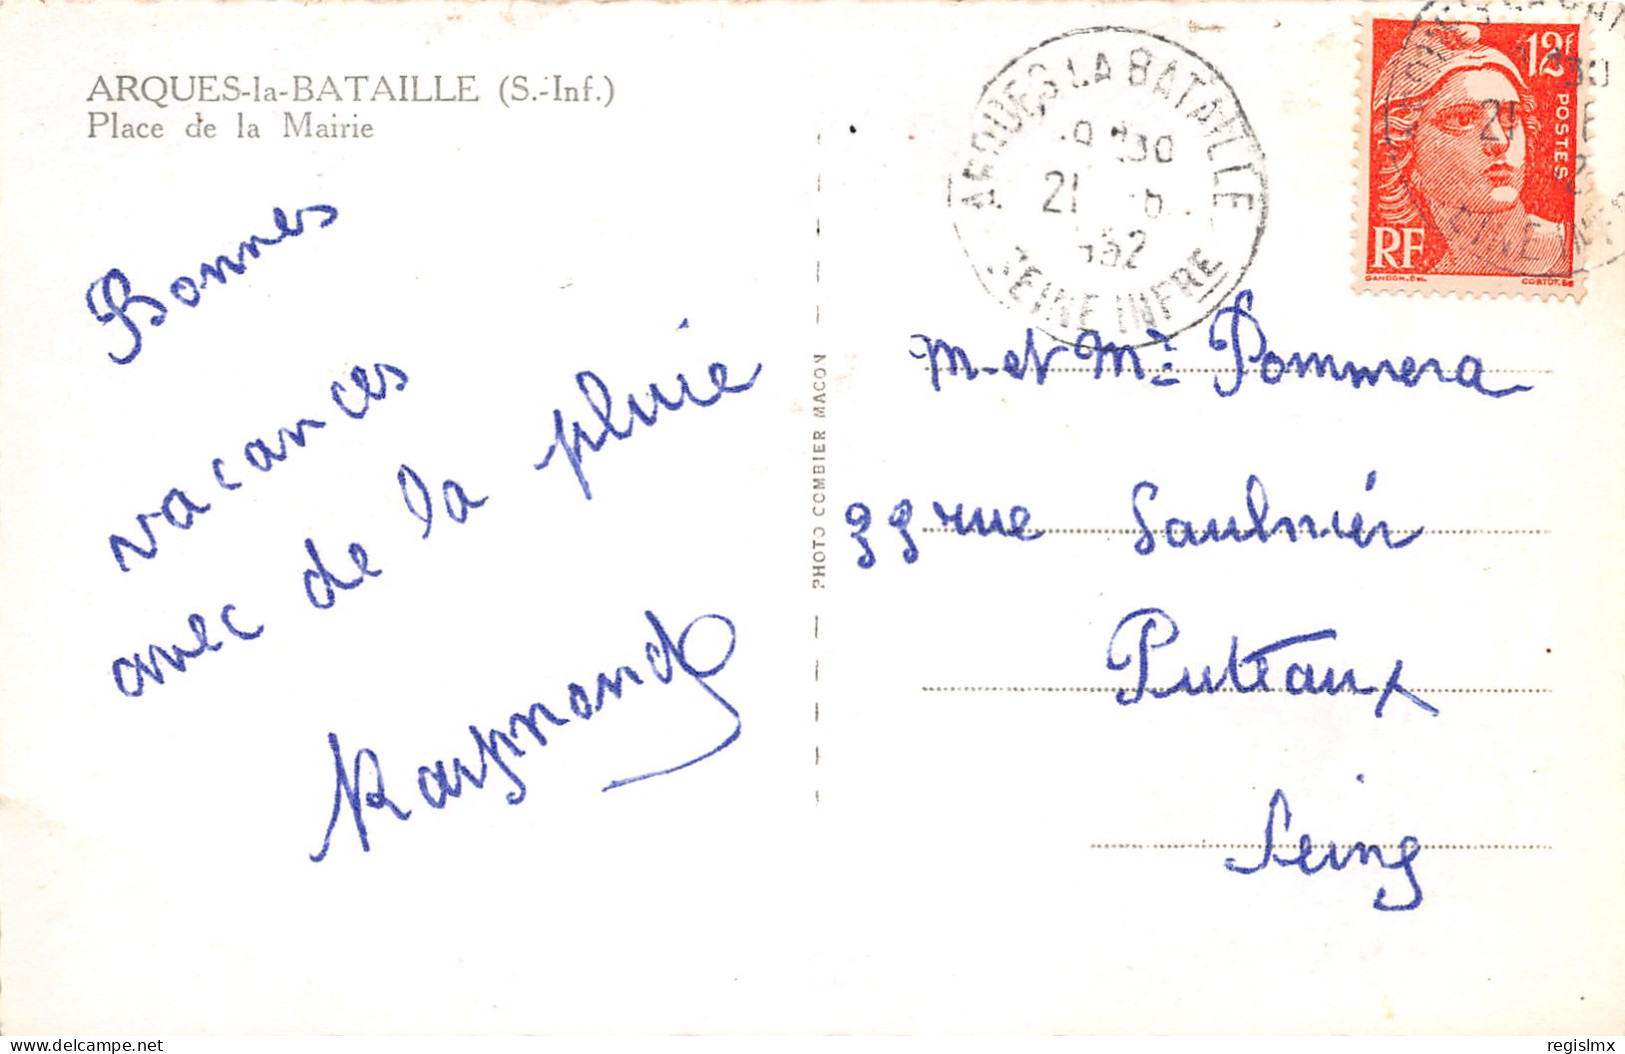 ARQUES-la-BATAILLE (S.-Inf.)
Place de la Mairie
Bonnes
vacances
avec de la pluie
Raymond
PHOTO COMBIER MACON
ARQUES LA BATAILLE
21
SEINE INFRE
12F
POSTES
RF
GANDON.
CORTOT.
21
M. et Me Pommera
99 rue Saulnier
Puteaux
Seine
delcampe.net
regislmx